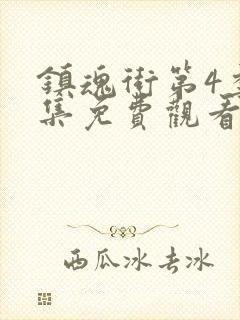 鎮魂街第4季
集免費觀看
西瓜冰去冰